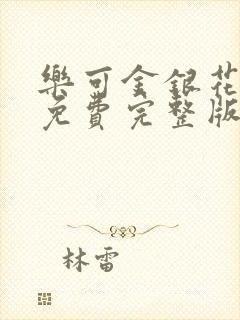 樂可金銀花
免費完整版
林雷